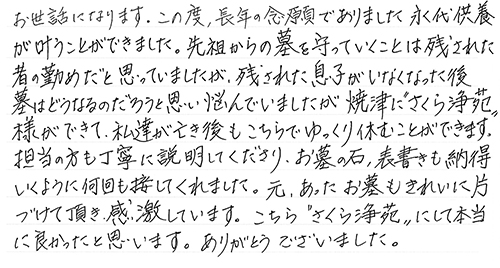 お世話になります。この度、長年の念願でありました永代供養
が叶うことができました。先祖からの墓を守っていくことは残された
者の勤めだと思っていましたが、残された息子がいなくなった後
墓はどうなるのだろうと思い悩んでいましたが焼津に"さくら浄苑"
様ができて、私達が亡き後もこちらでゆっくり休むことができます。
担当の方も丁寧に説明してくださり、お墓の石、表書きも納得
いくように何回も接してくれました。元、あったお墓もきれいに片
づけて頂き、感激しています。こちら"さくら浄苑"にして本当
に良かったと思います。ありがとうございました。